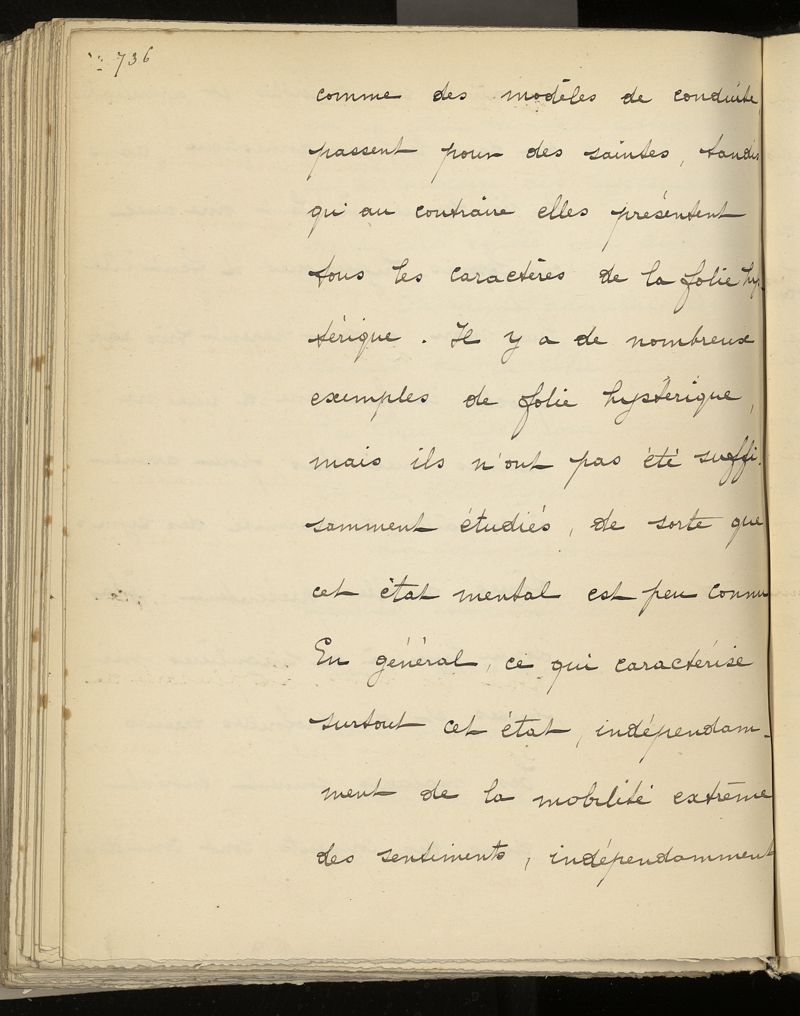 736
comme des modèles de conduite,
passent pour des saintes, tandis
qu'au contraire elles présentent
tous les caractères de la folie hys-
térique. Il y a de nombreux
exemples de folie hystérique,
mais ils n'ont pas été suffi-
samment étudiés, de sorte que
cet état mental est peu connu
En général, ce qui caractérise
surtout cet état, indépendam-
ment de la mobilité extrême
des sentiments, indépendamment